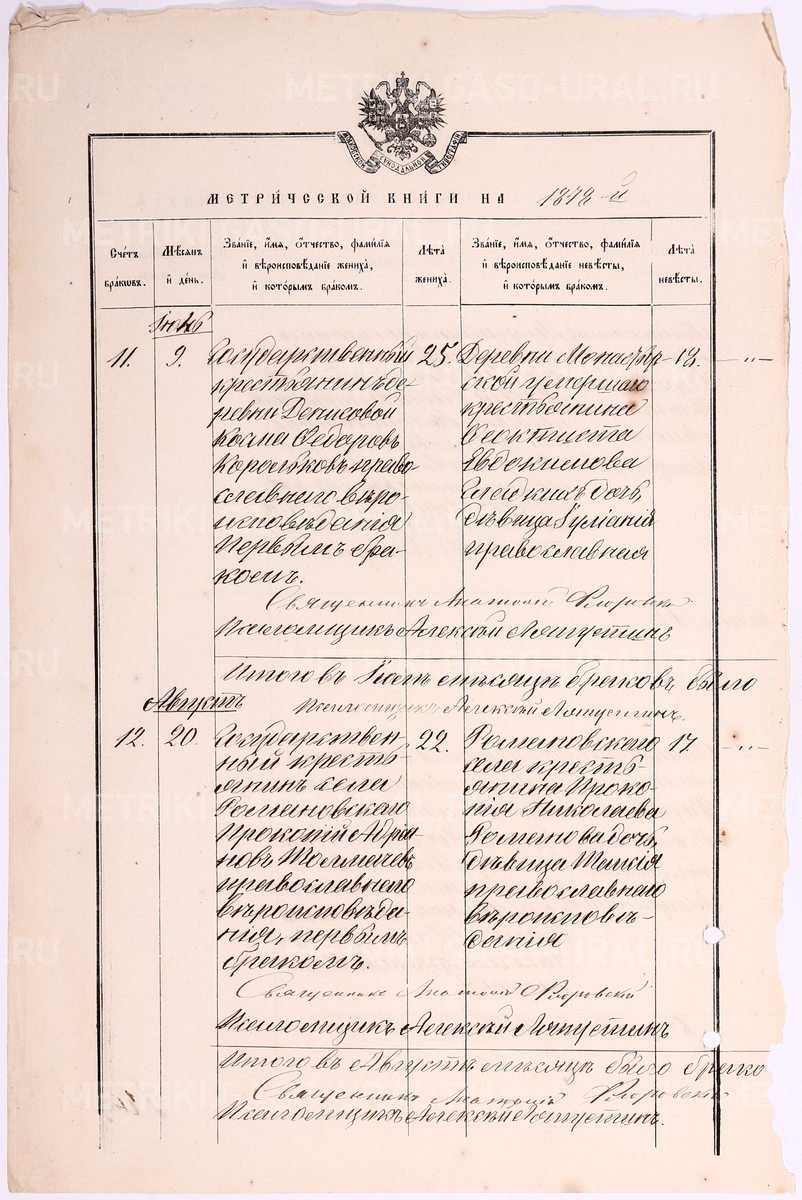 МОСКОВСКОЙ СѴНОДАЛЬНОЙ ТИПОГРАФІИ
МЕТРИЧЕССКОЙ КНИГИ НА 1878 й
Счетъ браковъ.
Мѣсяцъ и день.
Званіе, имя, отчество, фамилія и вѣроисповѣданіе жениха, и которымъ бракомъ.
Лѣта жениха.
Званіе, имя, отчество, фамилія и вѣроисповѣданіе невѣсты, и которымъ бракомъ.
Лѣта невѣсты.
11. 9.
Государственный
крестьянинъ де-
ревни Денисовой
Косма Ѳедоровъ
Корольковъ право
славнаго вѣро-
исповѣданія
первымъ бра-
комъ.
25.
Деревни Монастыр-
ской умершаго
крестьянина
Ѳеоктиста
Евдокимова
Гладкихъ дочь,
дѣвица Іуліанія
православная
18. —"—
Священникъ Анатолій Флоровскій
Псаломщикъ Алексѣй Ляпустинъ
Итого въ мѣсяцѣ браковъ было
Псаломщикъ Алексѣй Ляпустинъ.
Августъ
12. 20.
Государствен
ный кресть-
янинъ села
Романовскаго
Прокопій Адріа
новъ Толмачевъ
православнаго
вѣроисповѣда-
нія, первымъ
бракомъ.
22.
Романовскаго
села кресть-
янина Проко-
пія Николаева
Романова дочь,
дѣвица Таисія
православнаго
вѣроисповѣ-
данія
17. —"—
Священникъ Анатолій Флоровскій
Псаломщикъ Алексѣй Ляпустинъ
Итого въ Августѣ мѣсяцѣ было брако
Священникъ Анатолій Флоровскій
Псаломщикъ Алексѣй Ляпустинъ.
METRIKI-GASO-URAL.RU